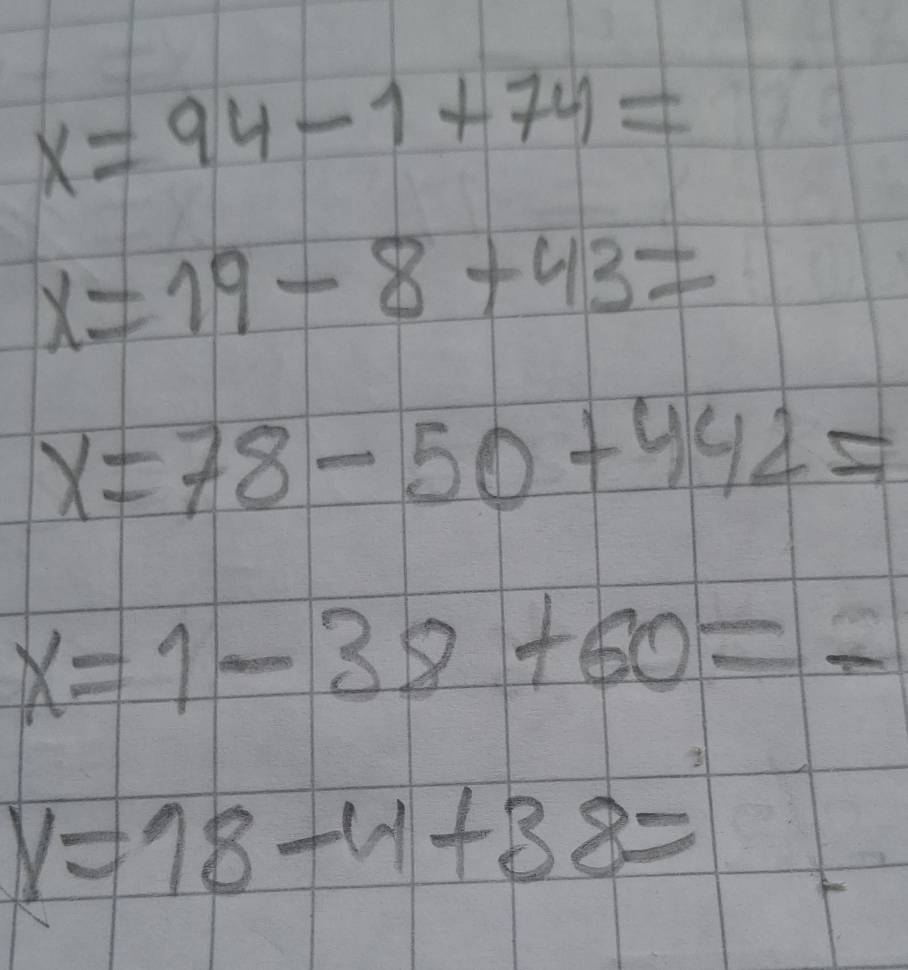 x = 94 - 1 + 74 =
x = 19 - 8 + 43 =
x = 78 - 50 + 442 =
x = 1 - 38 + 60 = -
x = 18 - 4 + 38 =